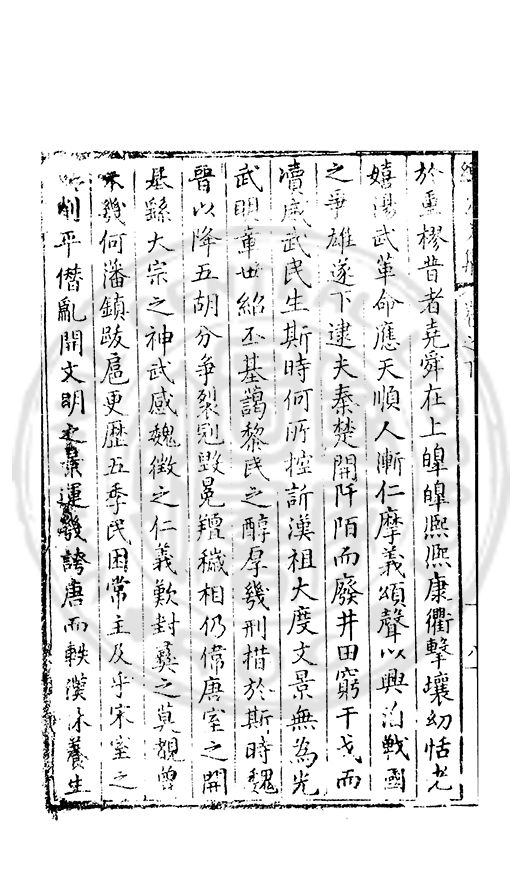 於重樛昔者堯舜在上皥皥熈熈康衢擊壤幼恬老
嬉湯武革命應天順人漸仁摩義頌聲以興洎戰國
之爭雄遂下逮夫秦楚開阡陌而廢井田窮干戈而
瀆威武民生斯時何所控訴漢祖大度文景無為光
武明章世紹丕基藹黎民之醇厚幾刑措於斯時魏
晉以降五胡分爭裂冠毀冕羶穢相仍偉唐室之開
基繇大宗之神武感魏徵之仁義歎封彞之莫覩曾
未幾何潘鎮跋扈更歷五季民困常主及乎宋室之
削平僭亂開文明之景運幾誇唐而軼漢休養生